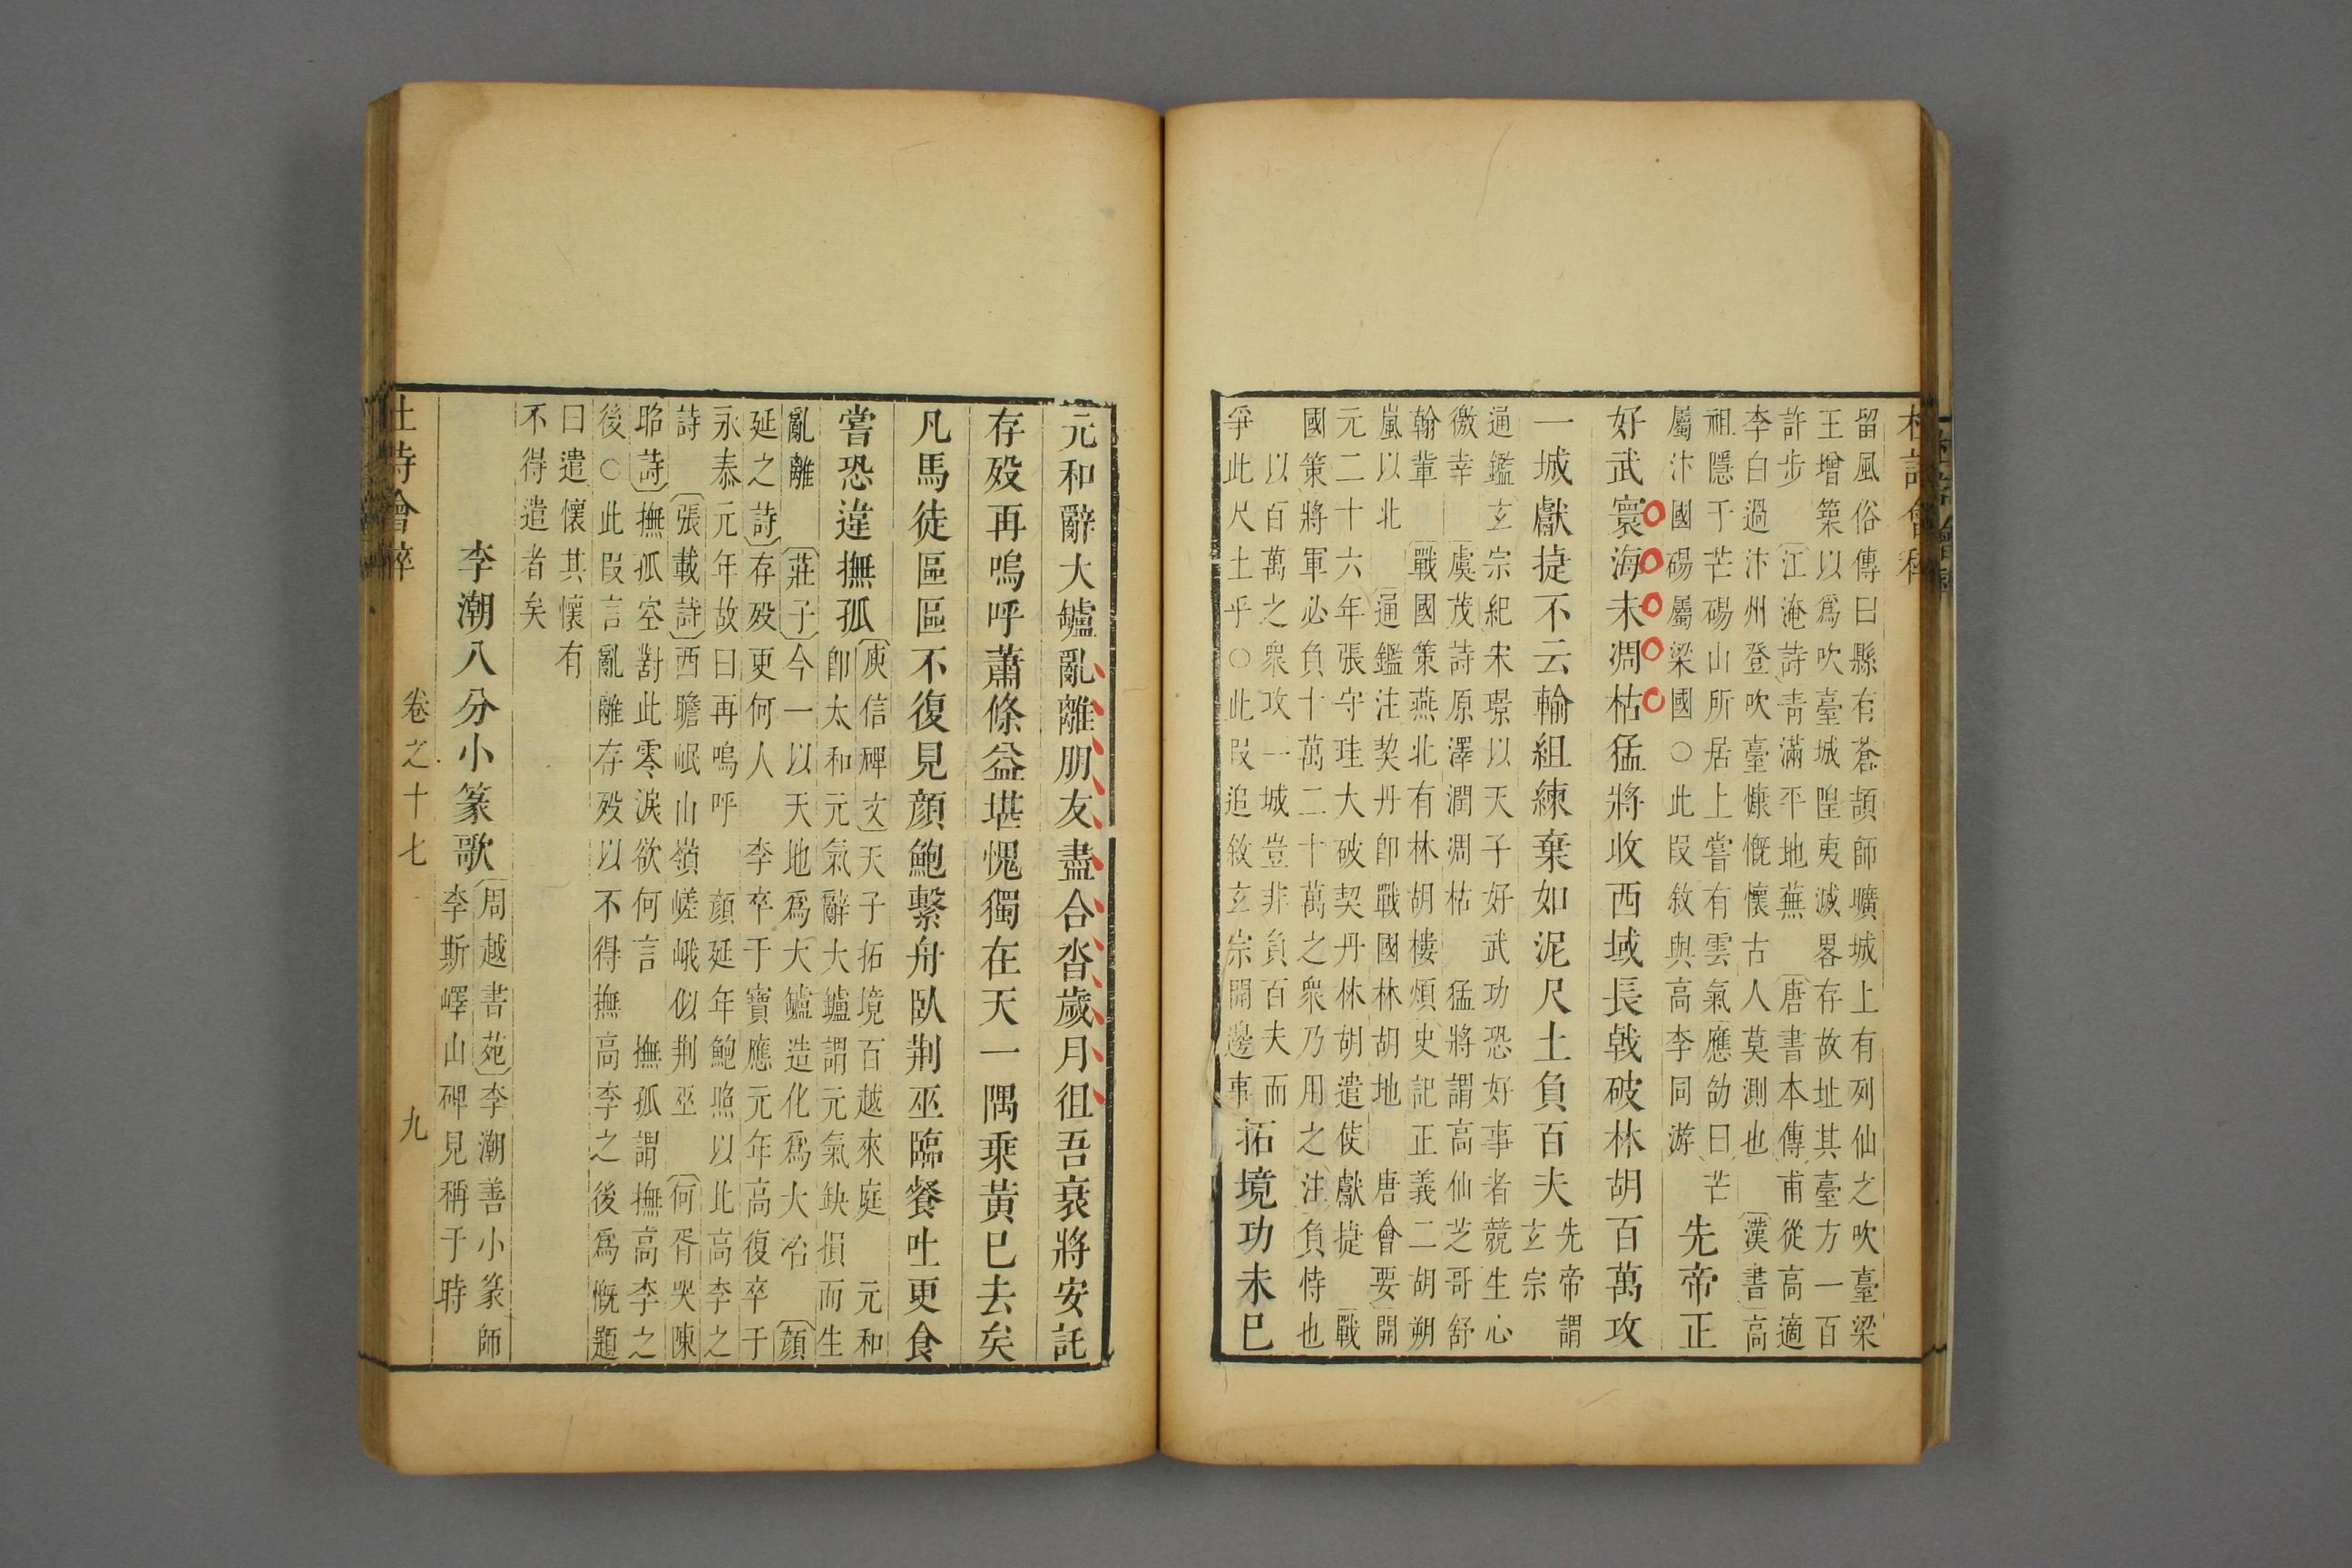 杜詩會稡
留風俗傳曰縣有蒼頡師曠城上有列仙之吹臺梁
王增築以爲吹臺城隍夷滅畧存故址其臺方一百
許步 江淹詩靑滿平地蕪 唐書本傳甫從高適
李白過汴州登吹臺慷慨懷古人莫測也 漢書高
祖隱于芒碭山所居上嘗有雲氣應劭曰芒
屬汴國碭屬梁國○此叚敘與高李同游
先帝正
好武寰海未凋枯猛將收西域長戟破林胡百萬攻
一城獻捷不云輸組練棄如泥尺土負百夫
先帝謂
玄宗
通鑑玄宗紀宋璟以天子好武功恐好事者競生心
徼幸 虞茂詩原澤潤凋枯 猛將謂高仙芝哥舒
翰軰 戰國策燕北有林胡樓煩史記正義二胡朔
嵐以北 通鑑注契丹卽戰國林胡地 唐會要開
元二十六年張守珪大破契丹林胡遣使獻捷 戰
國策將軍必負十萬二十萬之衆乃用之注負恃也
以百萬之衆攻一城豈非負百夫而
爭此尺土乎○此叚追敘玄宗開邊事
拓境功未已
元和辭大罏亂離朋友盡合沓歲月徂吾衰將安託
存歿再嗚呼蕭條益堪愧獨在天一隅乘黃已去矣
凡馬徒區區不復見顔鮑繫舟臥荆巫臨餐吐更食
嘗恐違撫孤
庾信碑文天子拓境百越來庭 元和
卽太和元氣辭大罏謂元氣缺損而生
亂離 莊子今一以天地爲大罏造化爲大冶 顔
延之詩存歿更何人 李卒于寶應元年高復卒于
永泰元年故曰再嗚呼 顔延年鮑照以比高李之
詩 張載詩西瞻岷山嶺嵯峨似荆巫 何胥哭陳
昭詩撫孤空對此零淚欲何言 撫孤謂撫高李之
後○此叚言亂離存歿以不得撫高李之後爲慨題
曰遣懷其懷有
不得遣者矣
李潮八分小篆歌
周越書苑李潮善小篆師
李斯嶧山碑見稱于時
杜詩會稡 卷之十七 九